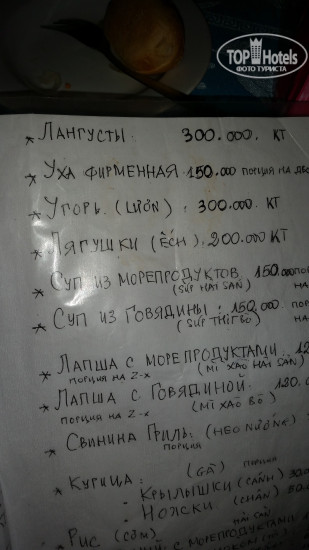 TOP Hotels
ФОТО ТУРИСТА
* ЛАНГУСТЫ. 300.000. КТ
* УХА ФИРМЕННАЯ 150.000 ПОРЦИЯ НА
* УГОРЬ. (LƯƠN). 300.000 КТ
* ЛЯГУШКИ (ẾCH). 200.000 КТ
* СУП ИЗ МОРЕПРОДУКТОВ. 150.000
(SÚP HẢI SẢN)
* СУП ИЗ ГОВЯДИНЫ. 150.000
(SÚP THỊT BÒ)
* ЛАПША С МОРЕПРОДУКТАМИ.
ПОРЦИЯ НА 2-Х (MÌ XÀO HẢI SẢN)
* ЛАПША С ГОВЯДИНОЙ. 120.
ПОРЦИЯ НА 2-Х (MÌ XÀO BÒ)
* СВИНИНА ГРИЛЬ. (HEO NƯỚNG)
ПОРЦИЯ
* КУРИЦА. (GÀ) ПОРЦИЯ
- КРЫЛЫШКИ (CÁNH)
- НОЖКИ (CHÂN)
* РИС (CƠM) HẢI SẢN
С МОРЕПРОДУКТАМИ